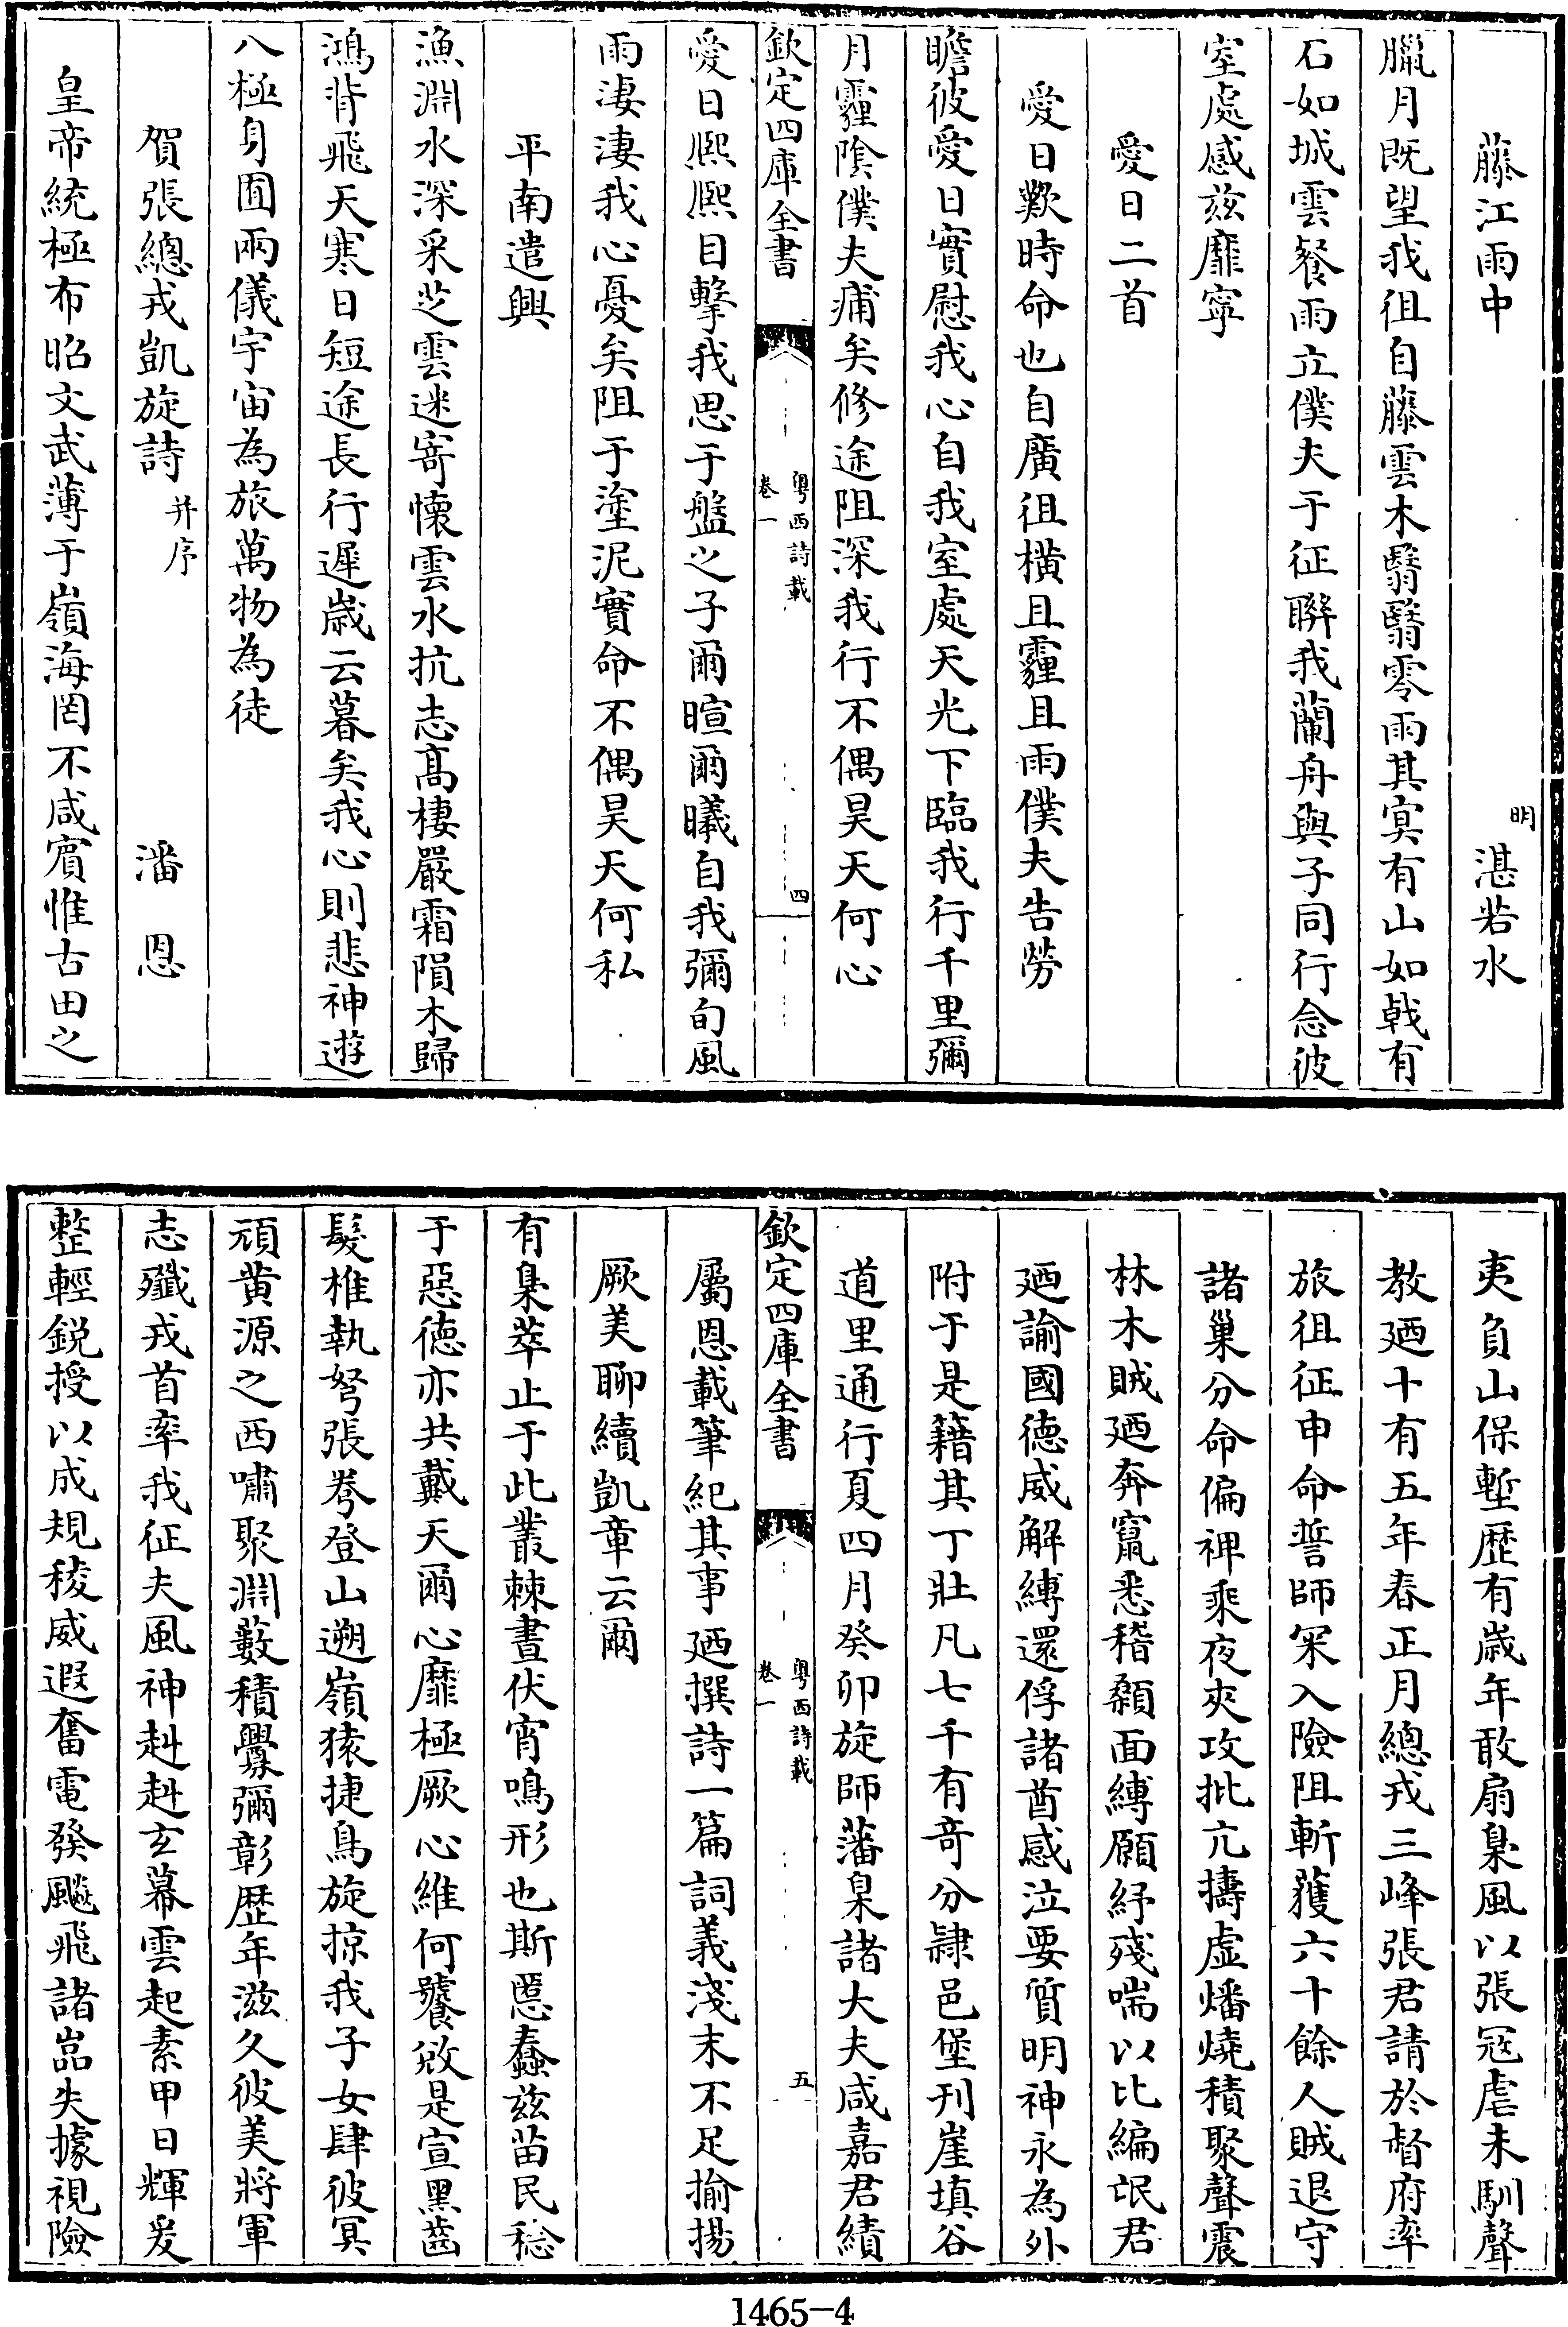 藤江雨中　明　湛若水
臘月既望我徂自藤雲木翳翳零雨其冥有山如㦸有
石如城雲餐雨立僕夫于征聨我蘭舟與子同行念彼
室處感兹靡寧
愛日二首
愛日歎時命也自廣徂橫且霾且雨僕夫告勞
瞻彼愛日實慰我心自我室處天光下臨我行千里彌
月霾隂僕夫痡矣修途阻深我行不偶昊天何心
欽定四庫全書　粤西詩載　卷一　四
愛日熈熈目擊我思于盤之子爾暄爾曦自我彌旬風
雨淒淒我心憂矣阻于塗泥實命不偶昊天何私
平南遣興
漁淵水深采芝雲迷寄懷雲水抗志髙棲嚴霜隕木歸
鴻背飛天寒日短途長行遲嵗云暮矣我心則悲神遊
八極身囿兩儀宇宙為旅萬物為徒
賀張總戎凱旋詩并序　潘恩
皇帝統極布昭文武薄于嶺海罔不咸賓惟古田之
夷負山保塹歴有嵗年敢扇梟風以張冦虐未馴聲
教廼十有五年春正月總戎三峰張君請於督府率
旅徂征申命誓師罙入險阻斬䕶六十餘人賊退守
諸巢分命偏裨乘夜夾攻批亢擣虚燔燒積聚聲震
林木賊廼奔竄悉稽顙面縛願紓殘喘以比編氓君
廼諭國徳威解縛還俘諸酋感泣要質明神永為外
附于是籍其丁壯凡七千有竒分隷邑堡刋崖填谷
道里通行夏四月癸卯旋師藩臬諸大夫咸嘉君績
欽定四庫全書　粤西詩載　卷一　五
屬恩載筆紀其事廼撰詩一篇詞義淺末不足揄揚
厥美聊續凱章云爾
有梟萃止于此叢棘晝伏宵鳴形也斯慝蠢兹苗民稔
于惡徳亦共戴天爾心靡極厥心維何饕敓是宣黑齒
髮椎執弩張弮登山遡嶺猿捷鳥旋掠我子女肆彼冥
頑黄源之西嘯聚淵藪積釁彌彰歴年滋久彼美將軍
志殲戎首率我征夫風神赳赳玄幕雲起素甲日輝爰
整輕鋭授以成規稜威遐奮電發飈飛諸嵓失據視險
1465-4